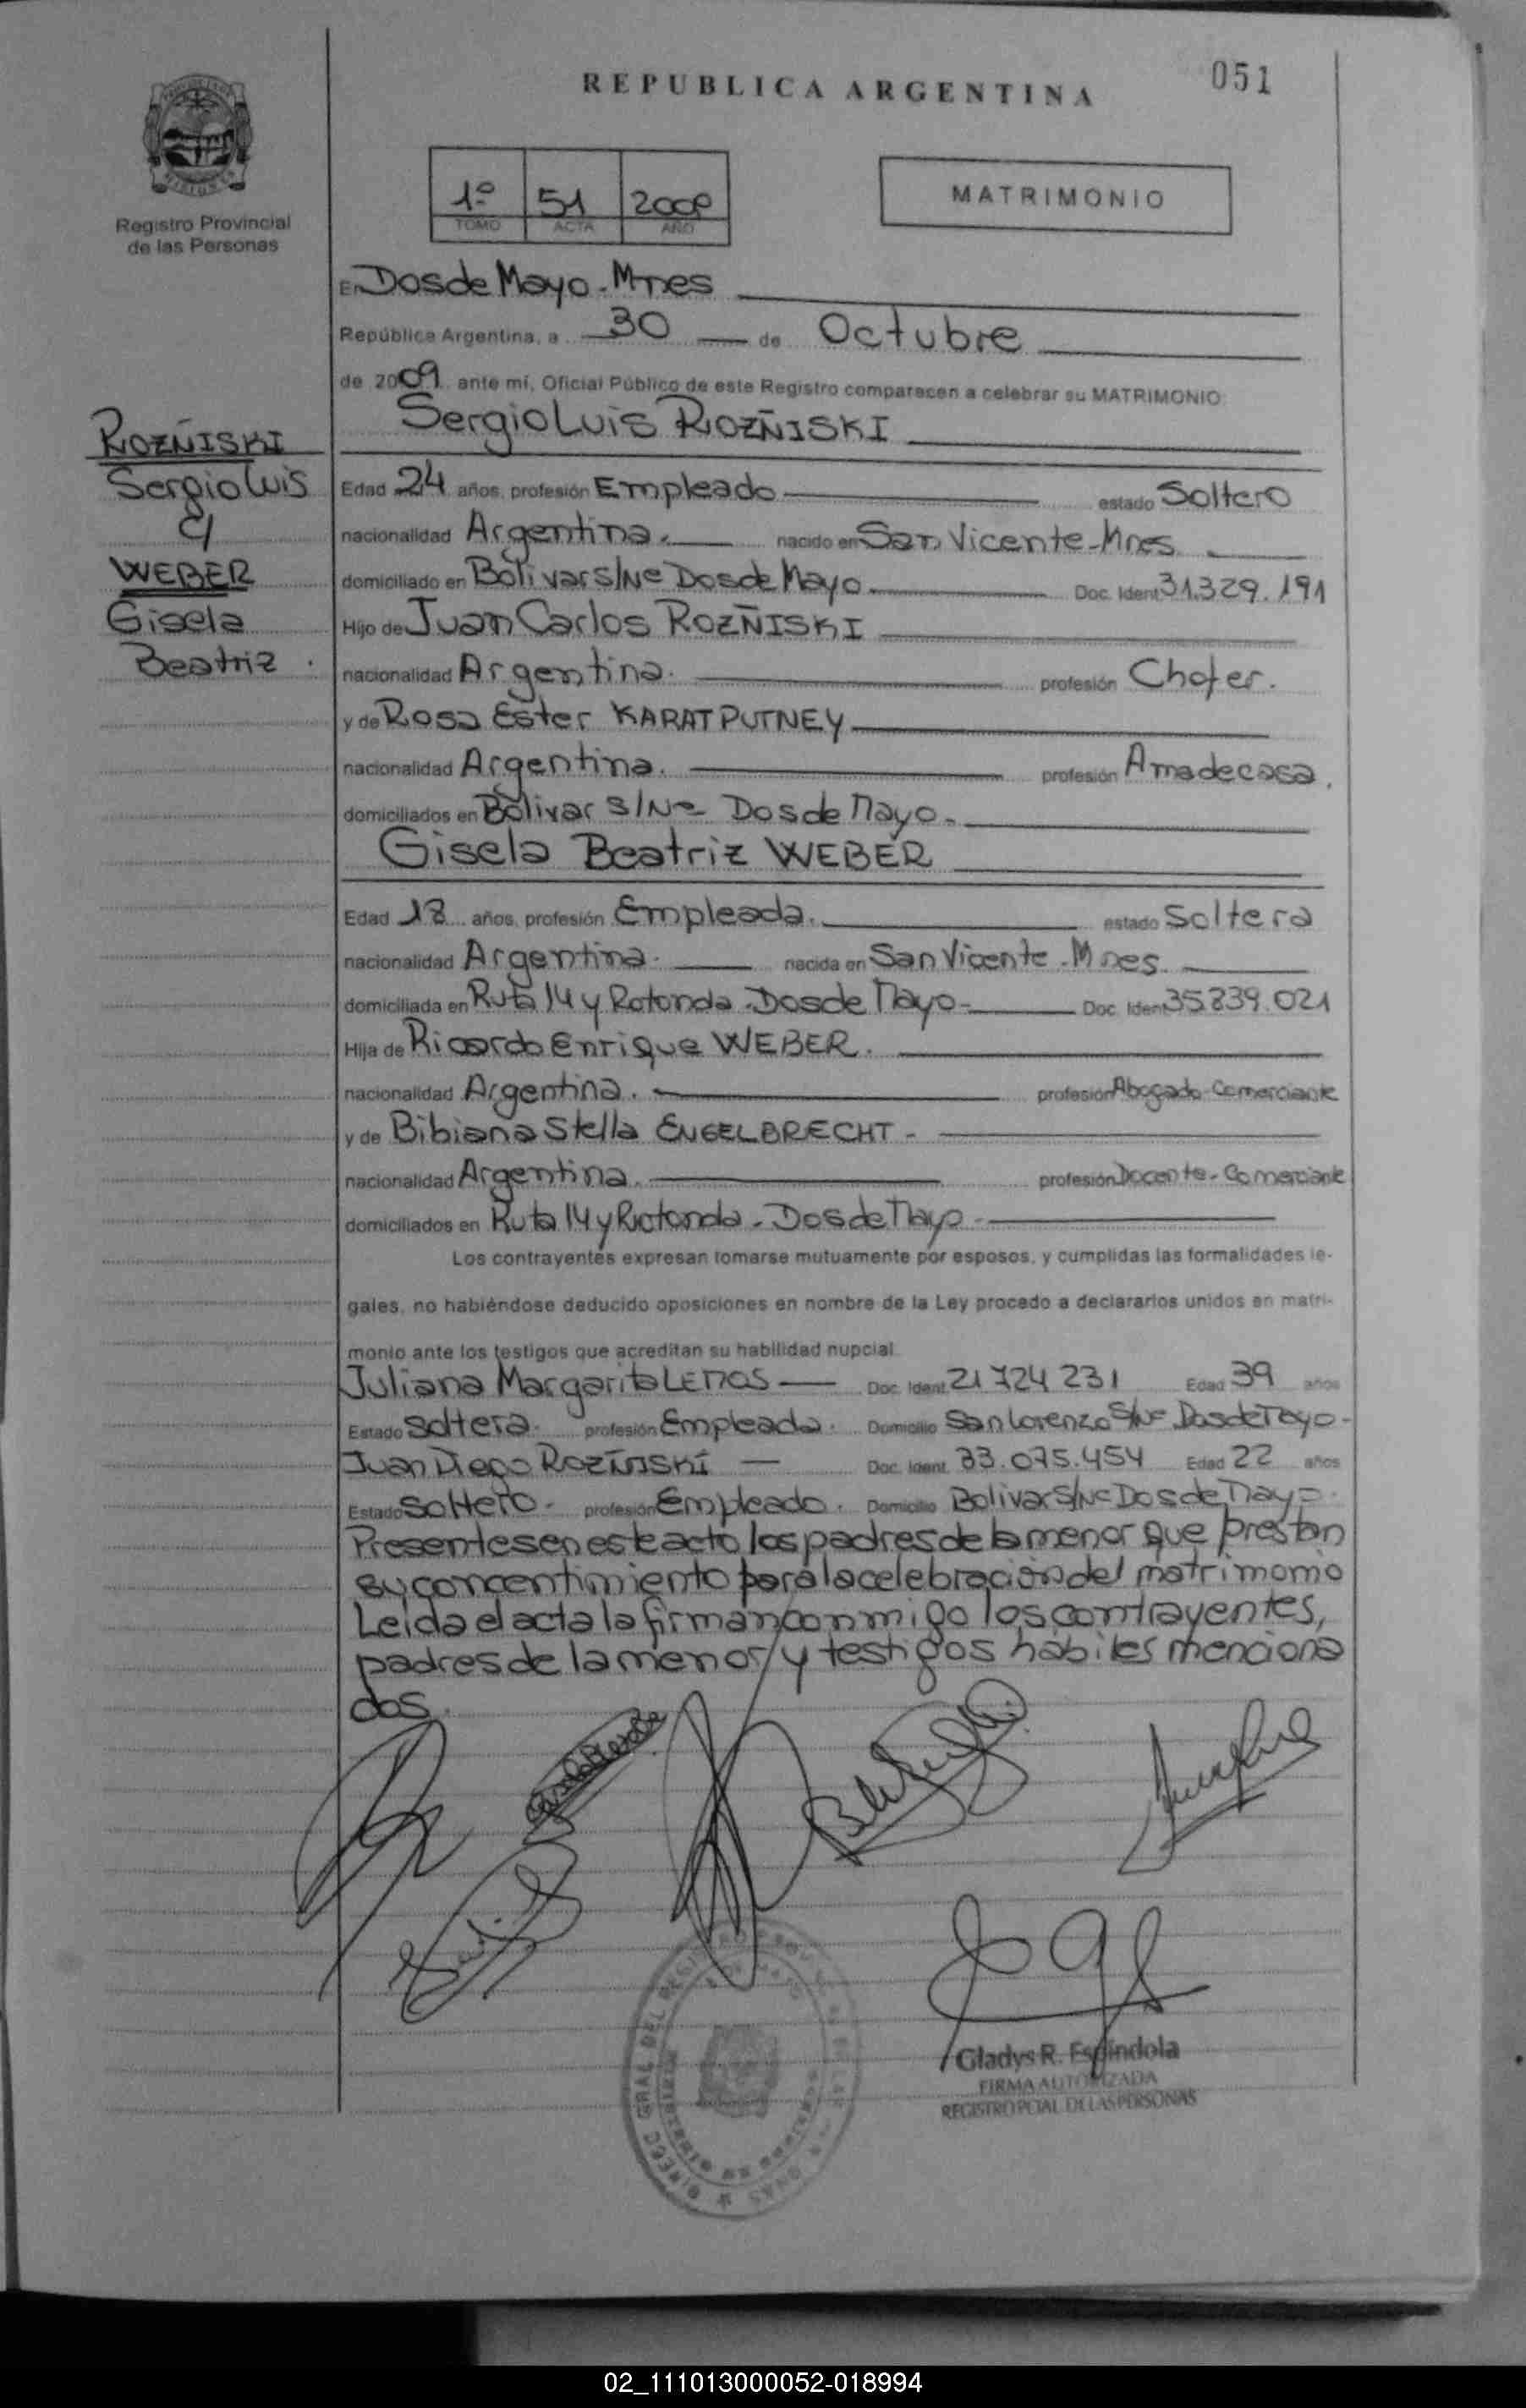 051
REPUBLICA ARGENTINA
Registro Provincial
de las Personas
1º 51 2009
TOMO ACTA AÑO
MATRIMONIO
En Dos de Mayo - Mnes
República Argentina, a 30 de Octubre
de 2009 ante mí, Oficial Público de este Registro comparecen a celebrar su MATRIMONIO:
Sergio Luis ROZÑISKI
ROZÑISKI
Sergio Luis
c/
WEBER
Gisela
Beatriz.
Edad 24 años, profesión Empleado estado Soltero
nacionalidad Argentina. nacido en San Vicente - Mnes.
domiciliado en Bolivar S/Nº Dos de Mayo Doc. Ident 31.329.191
Hijo de Juan Carlos ROZÑISKI
nacionalidad Argentina. profesión Chofer.
y de Rosa Ester KARATPUTNEY
nacionalidad Argentina. profesión Ama de casa.
domiciliados en Bolivar S/Nº Dos de Mayo.
Gisela Beatriz WEBER
Edad 18 años, profesión Empleada. estado Soltera
nacionalidad Argentina. nacida en San Vicente - Mnes.
domiciliada en Ruta 14 y Rotonda - Dos de Mayo - Doc. Ident 35.839.021
Hija de Ricardo Enrique WEBER.
nacionalidad Argentina. profesión Abogado - Comerciante
y de Bibiana Stella ENGELBRECHT -
nacionalidad Argentina. profesión Docente - Comerciante
domiciliados en Ruta 14 y Rotonda - Dos de Mayo -
Los contrayentes expresan tomarse mutuamente por esposos, y cumplidas las formalidades le-
gales, no habiéndose deducido oposiciones en nombre de la Ley procedo a declararlos unidos en matri-
monio ante los testigos que acreditan su habilidad nupcial.
Juliana Margarita LEMOS Doc. Ident. 21 724 231 Edad 39 años
Estado Soltera. profesión Empleada. Domicilio San Lorenzo S/Nº Dos de Mayo -
Juan Diego ROZÑISKI Doc. Ident. 33.075.454 Edad 22 años
Estado Soltero - profesión Empleado. Domicilio Bolivar S/Nº Dos de Mayo.
Presentes en este acto los padres de la menor que prestan
su concentimiento para la celebración del matrimonio
Leida el acta la firman conmigo los contrayentes,
padres de la menor y testigos hábiles menciona
dos.
Gladys R. Espindola
FIRMA AUTORIZADA
REGISTRO PCIAL. DE LAS PERSONAS
02_111013000052-018994